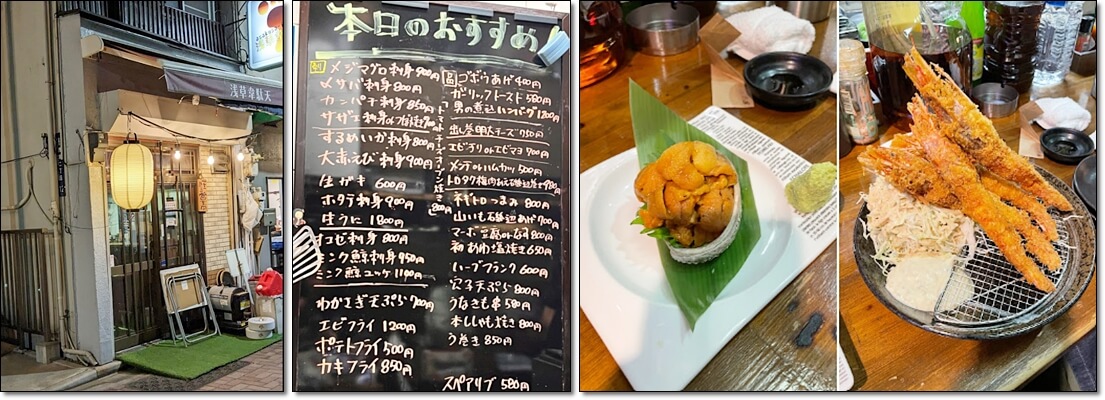 浅草韋駄天
本日のおすすめ!
メジマグロ刺身 900円
〆サバ刺身 800円
カンパチ刺身 850円
サザエ刺身or
するめいか刺身 800円
大赤えび刺身 900円
生ガキ 600円
ホタテ刺身 900円
生うに 1800円
オコゼ刺身 800円
ミンク鯨刺身 950円
ミンク鯨ユッケ 1100円
わかさぎ天ぷら 700円
エビフライ 1200円
ポテトフライ 500円
カキフライ 850円
トマトチーズオーブン焼き 800円
ゴボウあげ 400円
ガーリックトースト 580円
男の煮込ハンバーグ 1200円
出し巻明太チーズ 950円
エビチリorエビマヨ 900円
メンチorハムカツ 500円
800円
山いも石磯辺あげ 700円
マーボ豆腐orなす 800円
塩焼き 650円
ハーブフランク 600円
穴子天ぷら 800円
うなきも串 580円
本ししゃも焼き 800円
う巻き 850円
スペアリブ 580円